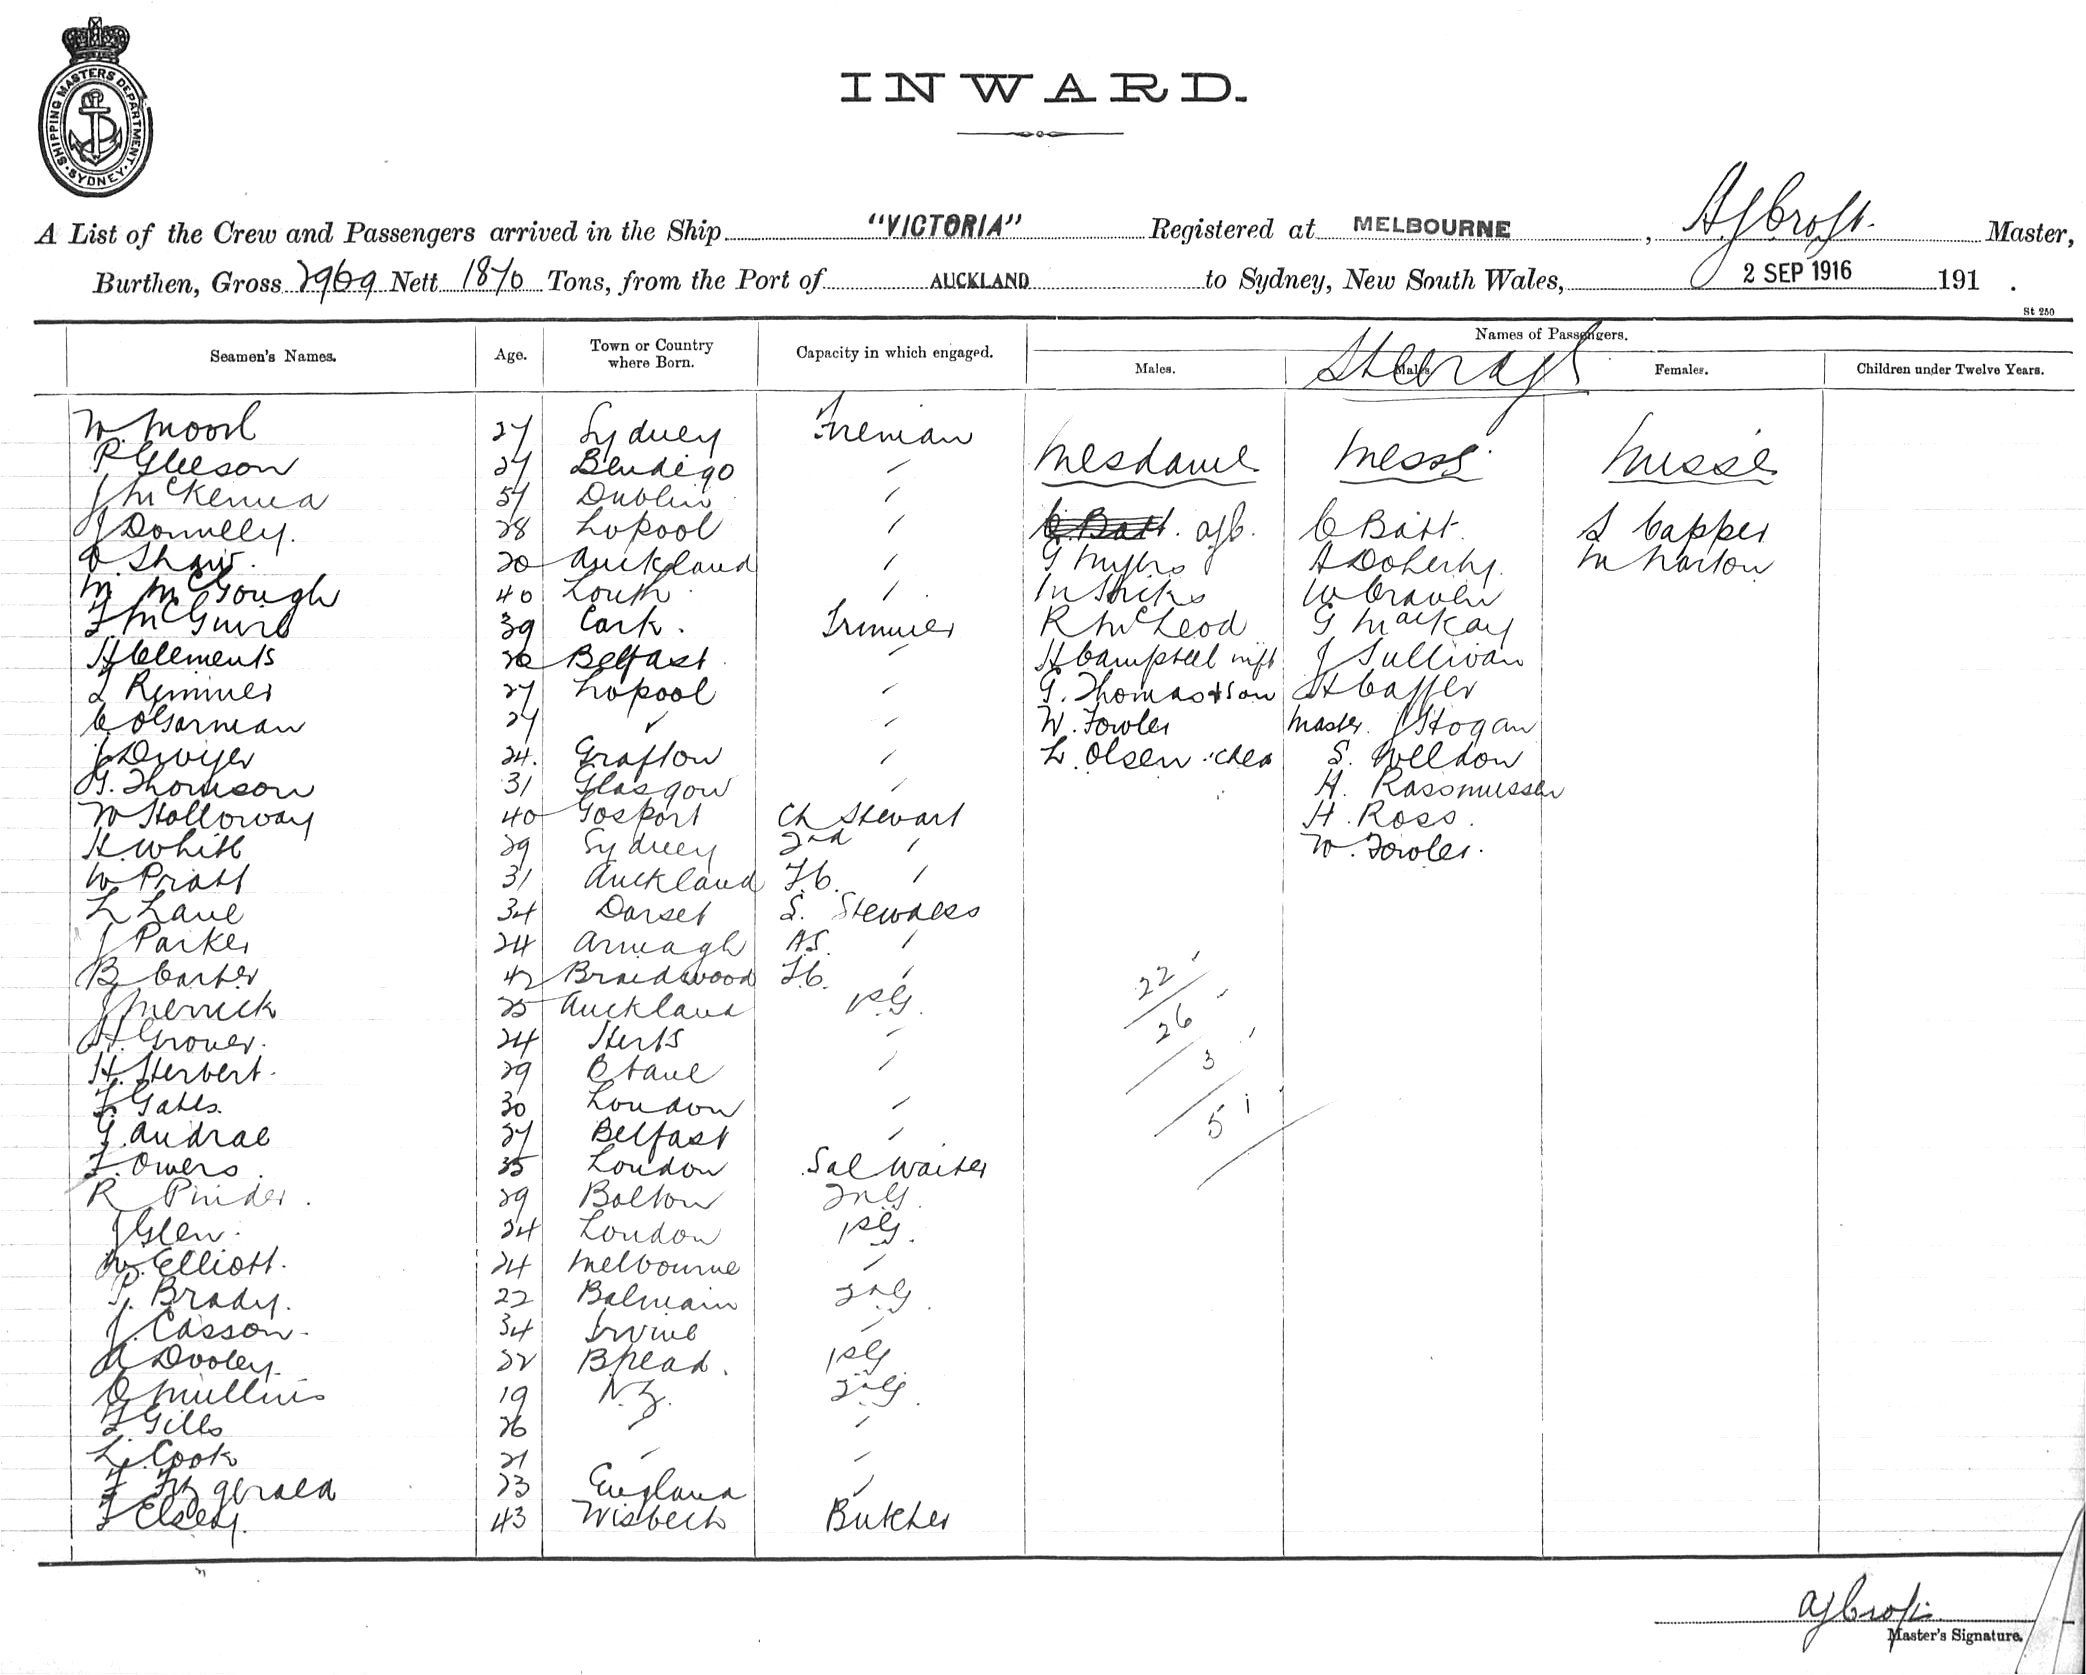 SHIPPING MASTERS DEPARTMENT. SYDNEY.
INWARD.
A List of the Crew and Passengers arrived in the Ship "VICTORIA" Registered at MELBOURNE, A J Croft. Master,
Burthen, Gross 2969 Nett 1870 Tons, from the Port of AUCKLAND to Sydney, New South Wales, 2 SEP 1916 191 .
St 250
Seamen's Names. Age. Town or Country where Born. Capacity in which engaged. Names of Passengers.
Males. Males. Females. Children under Twelve Years.
Steerage
Mesdame Messrs Misse
W. Moore 27 Sydney Fireman
P Gleeson 27 Bendigo "
J McKenna 57 Dublin "
J Donnelly. 28 Lopool " C. Batt. AJC. C Batt. S Capper
C Shaw. 20 Auckland " G Myers A Doherty. M Norton
M McGough 40 Louth " M Hicks W Craven
F McGuire 39 Cork. Trimmer R McLeod G Mackay
H Clements 20 Belfast " H Campbell inft J Sullivan
L Rimmer 27 Lopool " G. Thomas & Son H Caffer
C O'Gorman 27 " " W. Fowler Master. J Hogan
J Dwyer 24. Grafton " L. Olsen S. Welldon
G. Thomson 31 Glasgow " H. Rassmussen
W Holloway 40 Gosport Ch Stewart H. Ross.
H. White 29 Sydney 2nd " W. Fowler.
W Pratt 31 Auckland F.C. "
L Lane 34 Dorset S. Stewdess
J Parker 24 Armagh A.S. "
B Carter 42 Braidwood F.C. "
J Merrick 25 Auckland 1st G.
H. Grover. 24 Herts "
H. Herbert. 29 Otane "
F Gates. 30 London "
G. Andrae 27 Belfast "
F. Owers. 35 London Sal Waiter
R Pinder. 29 Bolton 2nd G.
J Glen. 24 London 1st G.
W. Elliott. 24 Melbourne "
P. Brady. 22 Balmain 2nd G.
J. Casson. 34 Irvine "
A Dooley. 22 B'head. 1st G
C Mullins 19 N.Z. 2nd G.
F. Gills 26 " "
L. Cook 21 " "
F Fitzgerald 23 England "
F Elsey. 43 Wisbech Butcher
22
26
3
51
A J Croft.
Master's Signature.